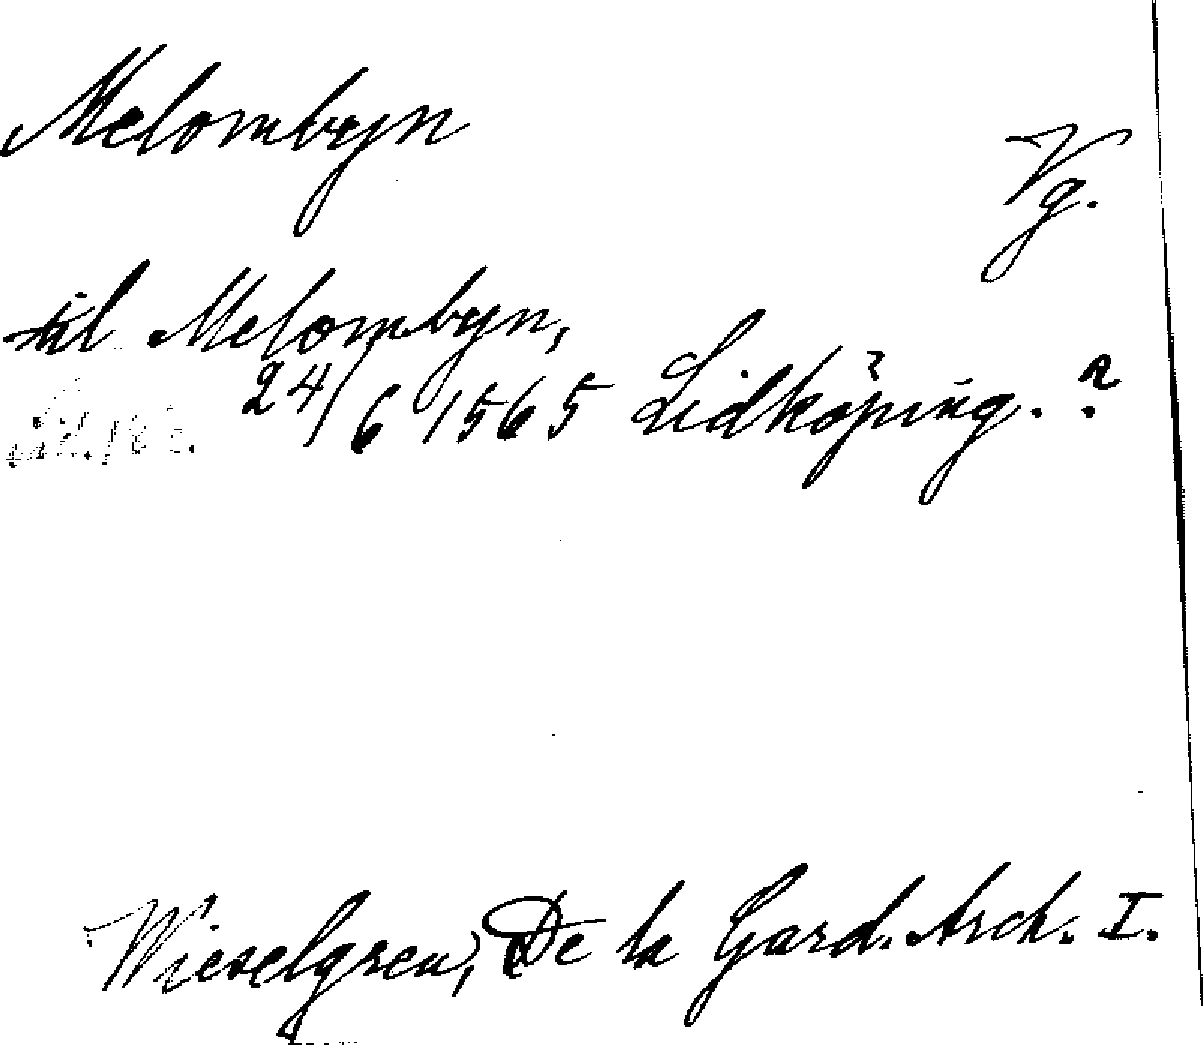 Melombyn
Vg.
til Melombyn,
24/6 1565 Lidköping. ?
Wieselgren, De la Gard. Arch. I.